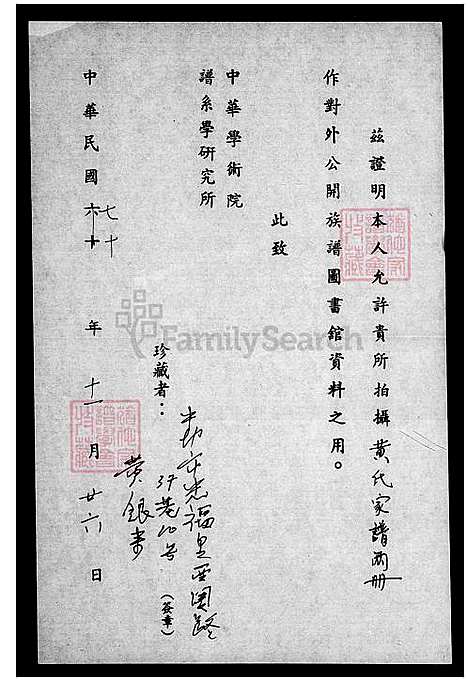 茲證明本人允許貴所拍攝黃氏家譜兩册
作對外公開族譜圖書館資料之用。
此致
中華學術院
譜系學研究所
珍藏者：
福里西園路
37巷 号
黃銀 (簽章)
中華民國 六十 七十 年 十一 月 廿六 日
FamilySearch